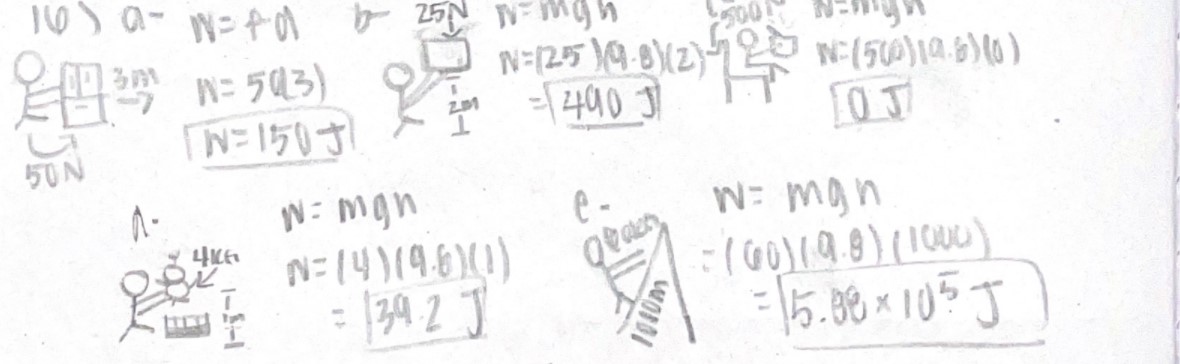 16) a- W = Fd
3m
W = 50(3)
W = 150 J
50N
b- 25N W = mgh
W = (25)(9.8)(2)
= 490 J
2m
500N W = mgh
W = (500)(9.8)(0)
0 J
d. W = mgh
4kg
W = (4)(9.8)(1)
= 39.2 J
1m
e- W = mgh
60kg
= (60)(9.8)(1000)
1000m
= 5.88 × 10⁵ J